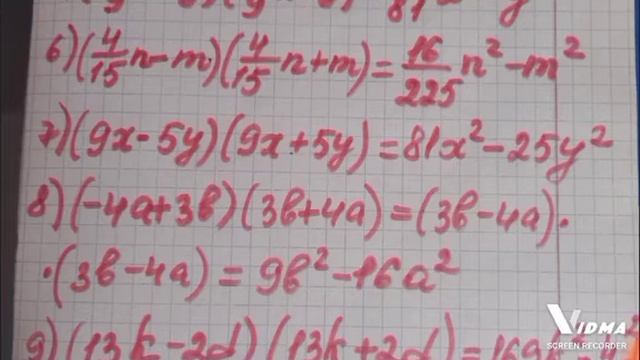 6) (4/15 n - m)(4/15 n + m) = 16/225 n² - m²
7) (9x - 5y)(9x + 5y) = 81x² - 25y²
8) (-4a + 3b)(3b + 4a) = (3b - 4a) ·
· (3b - 4a) = 9b² - 16a²
9) (13k - 2d)(13k + 2d) = 169
VIDMA
SCREEN RECORDER